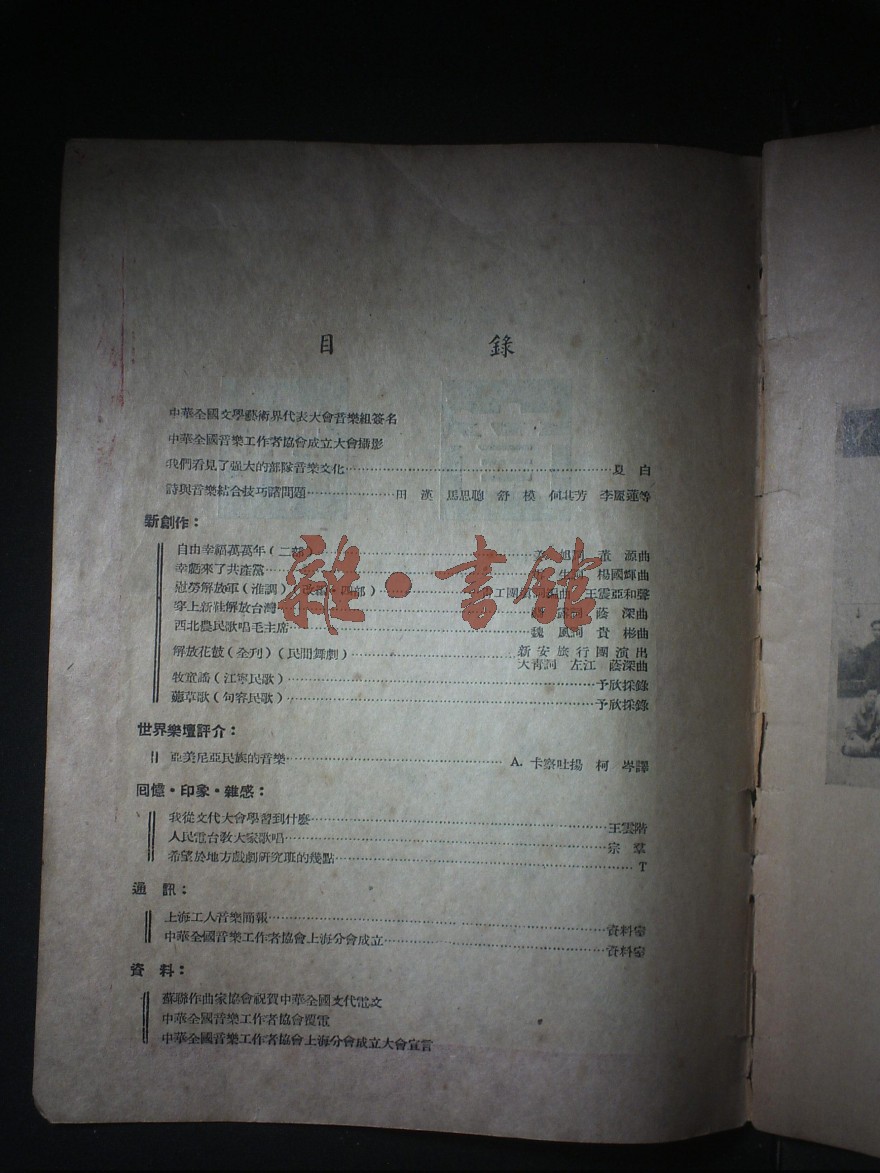 目 錄
中華全國文學藝術界代表大會音樂組簽名
中華全國音樂工作者協會成立大會攝影
我們看見了强大的部隊音樂文化……夏 白
詩與音樂結合技巧諸問題……田 漢 馬思聰 舒 模 何其芳 李麗蓮等
新創作：
自由幸福萬萬年（二部）……旭詞 董 源曲
幸虧來了共產黨……生詞 楊國輝曲
慰勞解放軍（淮調）（四部）……文工團 編曲 王震亞和聲
穿上新鞋解放台灣……詞 蔭 深曲
西北農民歌唱毛主席……魏 風詞 貴 彬曲
解放花鼓（全刋）（民間舞劇）……新安旅行團演出
大青詞 左江 蔭深曲
牧童謠（江寧民歌）……予欣採錄
薅草歌（句容民歌）……予欣採錄
世界樂壇評介：
亞美尼亞民族的音樂……A. 卡察吐揚 柯 岑譯
回憶·印象·雜感：
我從文代大會學習到什麽……王雲階
人民電台敎大家歌唱……宗 羣
希望於地方戲劇研究班的幾點……T
通 訊：
上海工人音樂簡報……資料室
中華全國音樂工作者協會上海分會成立……資料室
資 料：
蘇聯作曲家協會祝賀中華全國文代電文
中華全國音樂工作者協會覆電
中華全國音樂工作者協會上海分會成立大會宣言
雜·書館